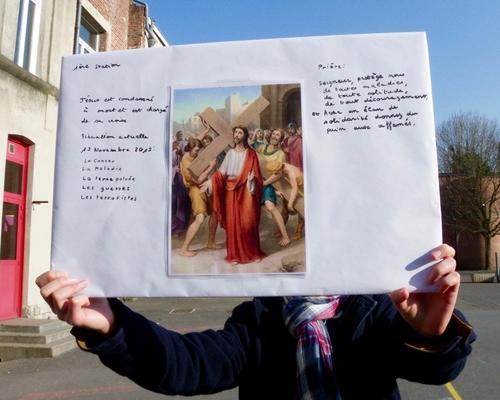 1ère station
Jésus est condamné
à mort et est chargé
de sa croix
Situation actuelle
13 Novembre 2015:
Le Cancer
La Maladie
La terre polués
Les guerres
Les terroristes
Prière:
Seigneur, protège nous
de toutes maladies,
de toute solitude,
de tout découragement,
Avec un élan de
solidarité donnez du
pain aux affamés.